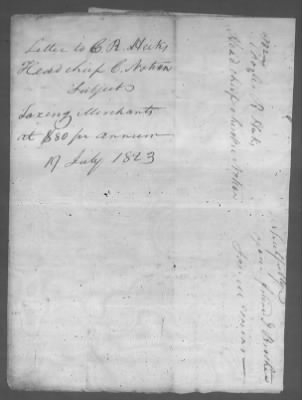 Letter to C R Hicks
Head chief C. Nation
Subject
Taxing Merchants
at $80 per annum
17 July 1823
Mr
Charles R. Hicks
Head chief Cherokee Nation
your friend & Brother